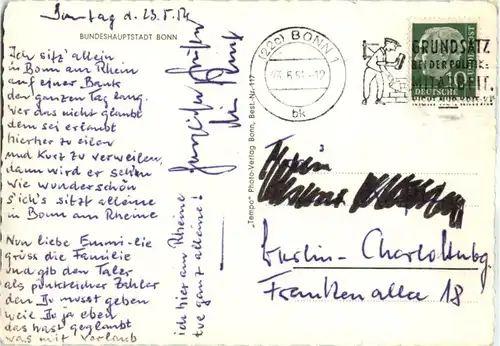 Sonntag d. 23.5.54
BUNDESHAUPTSTADT BONN
Ich sitz' allein
in Bonn am Rhein
auf einer Bank
den ganzen Tag lang.
Wer das nicht glaubt
dem sei erlaubt
hierher zu eilen
und Kurz zu verweilen,
dann wird er sehen
wie wunderschön
sich's sitzt alleine
in Bonn am Rheine
Nun liebe Emmi-lie
grüss die Familie
und gib den Taler
als pünktlicher Zahler
den Du musst geben
weil Du ja eben
das hast geglaubt
was mit Verlaub
ich hier am Rheine
tue ganz alleine!
Herzliche Grüsse
Dein
"Tempo" Photo-Verlag Bonn, Best.-Nr. 117
(22c) BONN 1
5.54.-12
bk
GRUNDSATZ
BEI DER POLITIK:
DEUTSCHE
10
Berlin-Charlottenbg.
Frankenallee 18